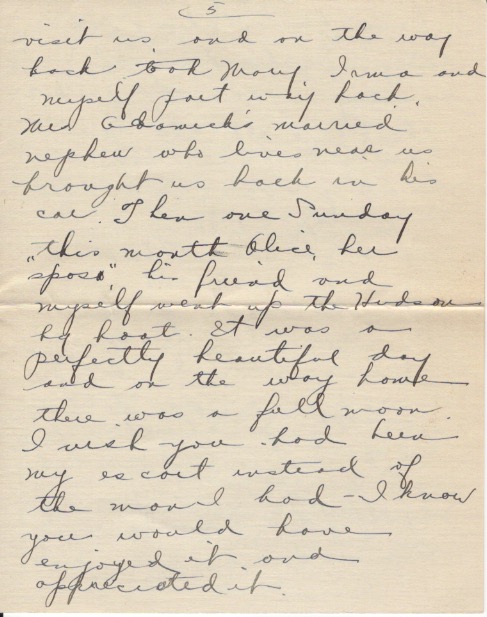 5
visit us and on the way
back took Mary, Irma and
myself part way back.
Mrs married
nephew who lives near us
brought us back in his
car. Then one Sunday
this month Alice, her
"sposo", his friend and
myself went up the Hudson
by boat. It was a
perfectly beautiful day
and on the way home
there was a full moon.
I wish you had been
my escort instead of
the man I had - I know
you would have
enjoyed it and
appreciated it.